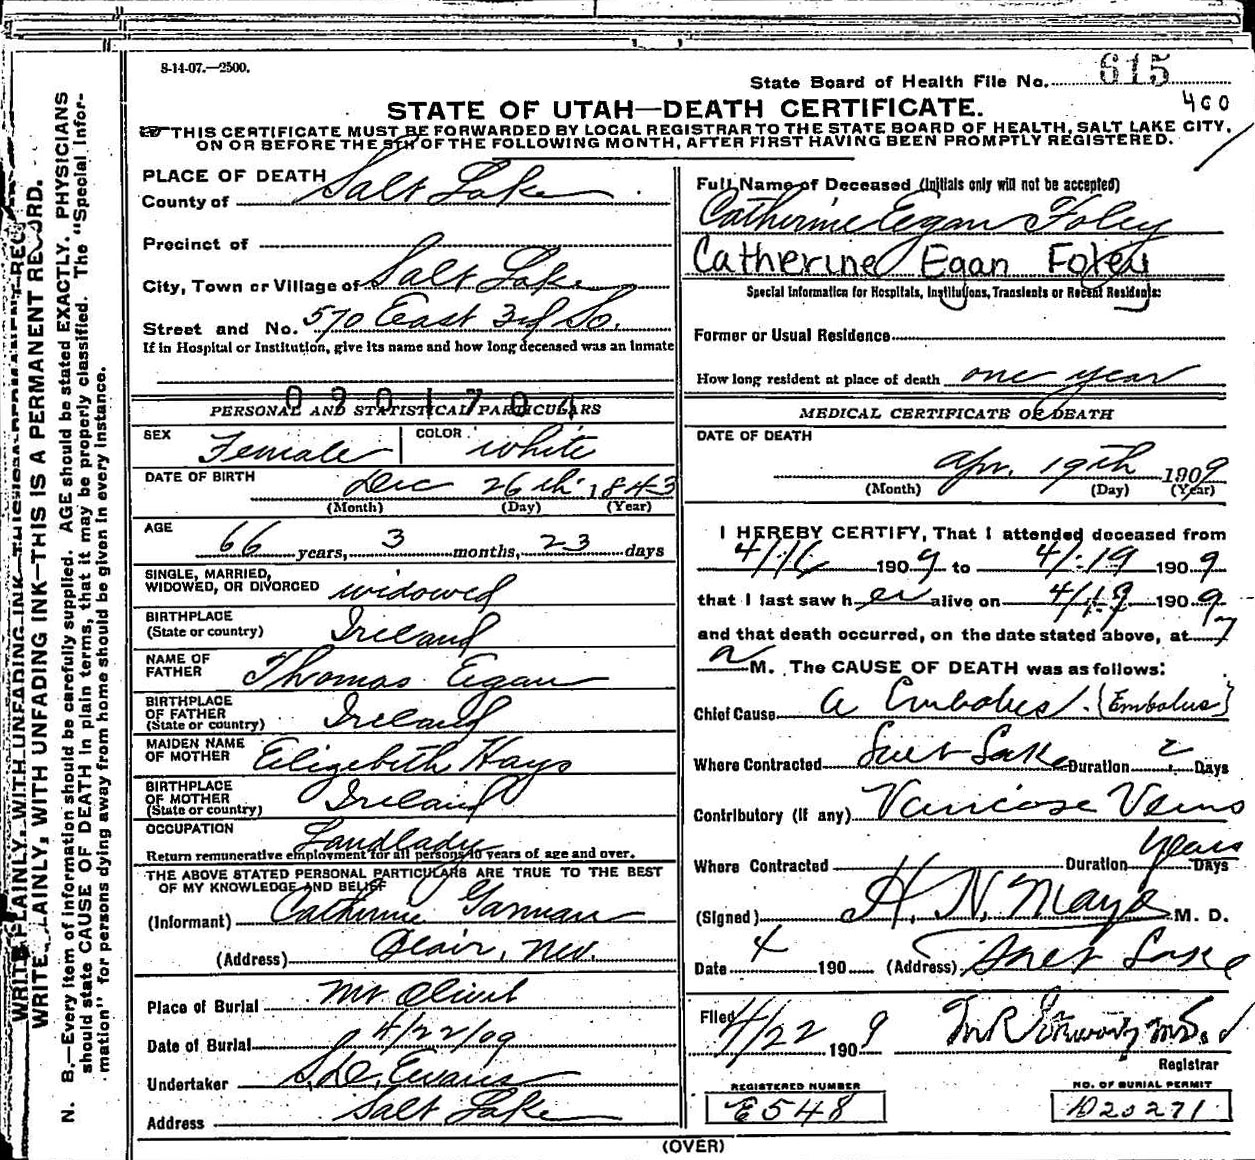 8-14-07.—2500.
State Board of Health File No. 615
400
STATE OF UTAH—DEATH CERTIFICATE.
THIS CERTIFICATE MUST BE FORWARDED BY LOCAL REGISTRAR TO THE STATE BOARD OF HEALTH, SALT LAKE CITY,
ON OR BEFORE THE 5TH OF THE FOLLOWING MONTH, AFTER FIRST HAVING BEEN PROMPTLY REGISTERED.
WRITE PLAINLY, WITH UNFADING INK—THIS IS A PERMANENT REC
WRITE PLAINLY, WITH UNFADING INK—THIS IS A PERMANENT RECORD.
N. B.—Every item of information should be carefully supplied. AGE should be stated EXACTLY. PHYSICIANS
should state CAUSE OF DEATH in plain terms, that it may be properly classified. The "Special Infor-
mation" for persons dying away from home should be given in every instance.
PLACE OF DEATH
County of Salt Lake
Precinct of
City, Town or Village of Salt Lake
Street and No. 570 East 3rd So.
If in Hospital or Institution, give its name and how long deceased was an inmate
PERSONAL AND STATISTICAL PARTICULARS
SEX Female COLOR white
DATE OF BIRTH Dec 26th 1843
(Month) (Day) (Year)
AGE 66 years, 3 months, 23 days
SINGLE, MARRIED,
WIDOWED, OR DIVORCED widowed
BIRTHPLACE
(State or country) Ireland
NAME OF
FATHER Thomas Egan
BIRTHPLACE
OF FATHER
(State or country) Ireland
MAIDEN NAME
OF MOTHER Elizebith Hays
BIRTHPLACE
OF MOTHER
(State or country) Ireland
OCCUPATION Landlady
Return remunerative employment for all persons 10 years of age and over.
THE ABOVE STATED PERSONAL PARTICULARS ARE TRUE TO THE BEST
OF MY KNOWLEDGE AND BELIEF
(Informant) Catherine Garman
(Address) Blair, Nev.
Place of Burial Mt Olivet
Date of Burial 4/22/09
Undertaker S.D. Evans
Address Salt Lake
Full Name of Deceased (Initials only will not be accepted)
Catherine Egan Foley
Catherine Egan Foley
Special Information for Hospitals, Institutions, Transients or Recent Residents:
Former or Usual Residence
How long resident at place of death one year
MEDICAL CERTIFICATE OF DEATH
DATE OF DEATH
Apr. 19th 1909
(Month) (Day) (Year)
I HEREBY CERTIFY, That I attended deceased from
4/16 1909 to 4/19 1909
that I last saw her alive on 4/19 1909
and that death occurred, on the date stated above, at 7
a M. The CAUSE OF DEATH was as follows:
Chief Cause A Embolus. {Embolus}
Where Contracted Salt Lake Duration 2 Days
Contributory (if any) Varicose Veins
Where Contracted Duration years Days
(Signed) H. N. Mayo M. D.
Date 4 190 (Address) Salt Lake
Filed 4/22 1909
Registrar
REGISTERED NUMBER
E548
NO. OF BURIAL PERMIT
D20271
(OVER)